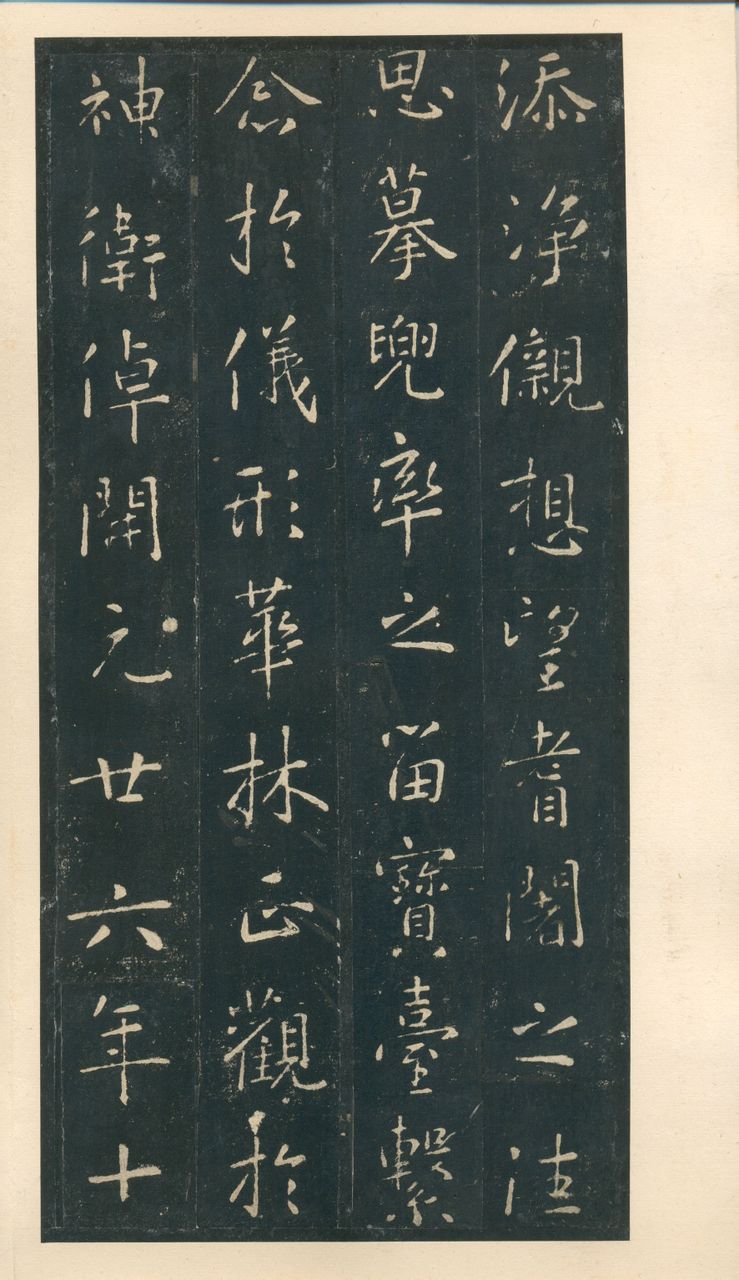 添淨儭想望耆闍之法
思摹兜率之留寶臺繫
念於儀形華林正觀於
神衛倬開元廿六年十